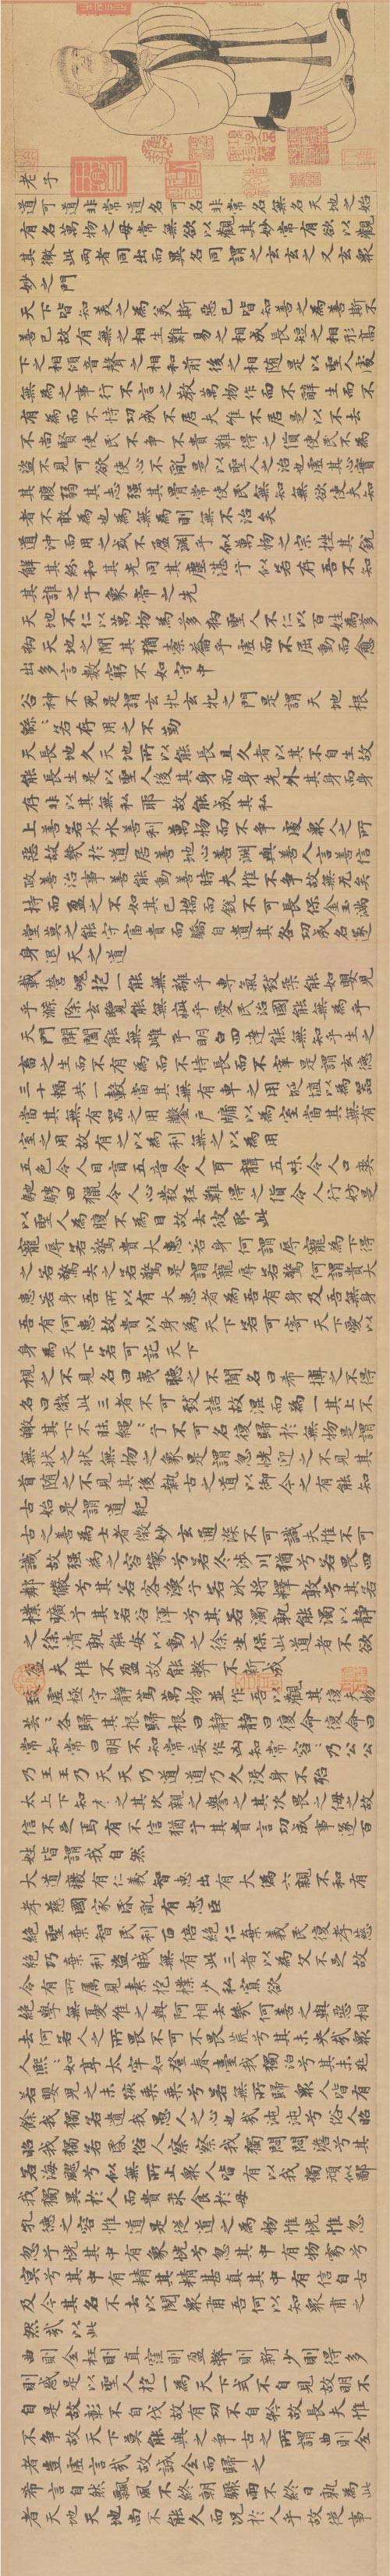 老子
道可道非常道名可名非常名無名天地之始
有名萬物之母常無欲以觀其妙常有欲以觀
其徼此兩者同出而異名同謂之玄玄之又玄衆
妙之門
天下皆知美之為美斯惡已皆知善之為善斯不
善已故有無之相生難易之相成長短之相形高
下之相傾音聲之相和前後之相隨是以聖人處
無為之事行不言之教萬物作而不辭生而不
有為而不恃功成不居夫惟不居是以不去
不尚賢使民不爭不貴難得之貨使民不為
盜不見可欲使心不亂是以聖人之治也虛其心實
其腹弱其志強其骨常使民無知無欲使夫知
者不敢為也為無為則無不治矣
道沖而用之或不盈淵乎似萬物之宗挫其銳
解其紛和其光同其塵湛兮似若存吾不知
其誰之子象帝之先
天地不仁以萬物為芻狗聖人不仁以百姓為芻
狗天地之間其猶橐籥乎虛而不屈動而愈
出多言數窮不如守中
谷神不死是謂玄牝玄牝之門是謂天地根
緜緜若存用之不勤
天長地久天地所以能長且久者以其不自生故
能長生是以聖人後其身而身先外其身而身
存非以其無私耶故能成其私
上善若水水善利萬物而不爭處衆人之所
惡故幾於道居善地心善淵與善人言善信
政善治事善能動善時夫惟不爭故無尤矣
持而盈之不如其已揣而銳不可長保金玉滿
堂莫之能守富貴而驕自遺其咎功成名遂
身退天之道
載營魄抱一能無離乎專氣致柔能如嬰兒
乎滌除玄覽能無疵乎愛民治國能無為乎
天門開闔能無雌乎明白四達能無知乎生之
畜之生而不有為而不恃長而不宰是謂玄德
三十輻共一轂當其無有車之用埏埴以為器
當其無有器之用鑿戶牖以為室當其無有
室之用故有之以為利無之以為用
五色令人目盲五音令人耳聾五味令人口爽
馳騁田獵令人心發狂難得之貨令人行妨是
以聖人為腹不為目故去彼取此
寵辱若驚貴大患若身何謂辱寵為下得
之若驚失之若驚是謂寵辱若驚何謂貴大
患若身吾所以有大患者為吾有身及吾無身
吾有何患故貴以身為天下若可寄天下愛以
身為天下若可託天下
視之不見名曰夷聽之不聞名曰希摶之不得
名曰微此三者不可致詰故混而為一其上不
皦其下不昧繩繩兮不可名復歸於無物是謂
無狀之狀無物之象是謂忽恍迎之不見其
首隨之不見其後執古之道以御今之有能知
古始是謂道紀
古之善為士者微妙玄通深不可識夫惟不可
識故強為之容豫兮若冬涉川猶兮若畏四
鄰儼兮其若客渙兮若冰將釋敦兮其若
樸曠兮其若谷渾兮其若濁孰能濁以靜
之徐清孰能安以動之徐生保此道者不欲
盈夫惟不盈故能弊不新成
致虛極守靜篤萬物並作吾以觀其復夫物
芸芸各歸其根歸根曰靜靜曰復命復命曰
常知常曰明不知常妄作凶知常容容乃公公
乃王王乃天天乃道道乃久沒身不殆
太上下知之其次親之譽之其次畏之侮之故
信不足焉有不信猶兮其貴言功成事遂百
姓皆謂我自然
大道廢有仁義智惠出有大偽六親不和有
孝慈國家昏亂有忠臣
絕聖棄智民利百倍絕仁棄義民復孝慈
絕巧棄利盜賊無有此三者以為文不足故
令有所屬見素抱樸少私寡欲
絕學無憂唯之與阿相去幾何善之與惡相
去何若人之所畏不可不畏荒兮其未央哉衆
人熙熙如享太牢如登春臺我獨泊兮其未兆
若嬰兒之未孩乘乘兮若無所歸衆人皆有
餘我獨若遺我愚人之心也哉沌沌兮俗人昭
昭我獨若昏俗人察察我獨悶悶澹兮其
若海飂兮似無所止衆人皆有以我獨頑似鄙
我獨異於人而貴求食於母
孔德之容惟道是從道之為物惟恍惟忽
忽兮恍其中有象恍兮忽其中有物窈兮
冥兮其中有精其精甚真其中有信自古
及今其名不去以閱衆甫吾何以知衆甫之
然哉以此
曲則全枉則直窪則盈弊則新少則得多
則惑是以聖人抱一為天下式不自見故明不
自是故彰不自伐故有功不自矜故長夫惟
不爭故天下莫能與之爭古之所謂曲則全
者豈虛言哉故誠全而歸之
希言自然飄風不終朝驟雨不終日孰為此
者天地天地尚不能久而況於人乎故從事